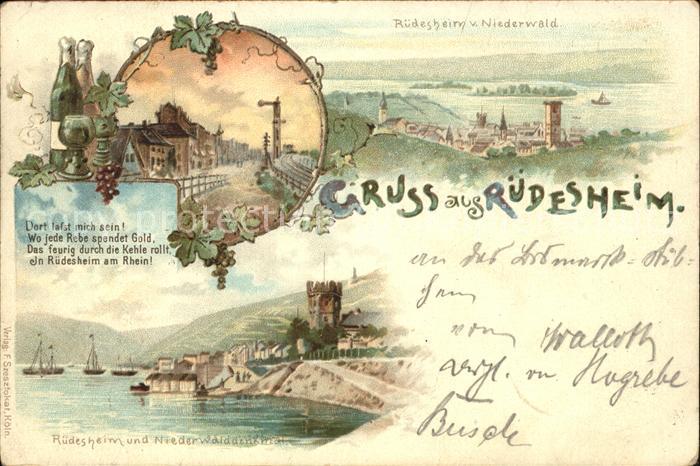 Rüdesheim v. Niederwald.
GRUSS aus RÜDESHEIM.
Dort laßt mich sein!
Wo jede Rebe spendet Gold,
Das feurig durch die Kehle rollt,
In Rüdesheim am Rhein!
an das Bismarck-Stüb-
chen
vom Walloth
vergl. v. Hogrebe
Busch
Rüdesheim und Niederwalddenkmal.
Verlag: F. Szesztokat, Köln.